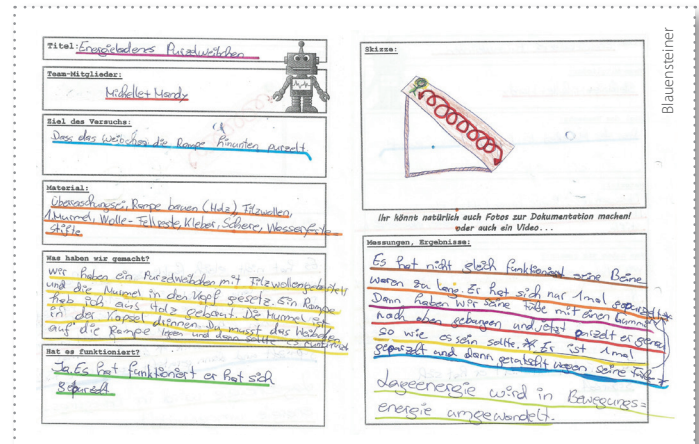 Titel: Energieladenes Purzelweibchen
Team-Mitglieder:
Michelle + Mandy
Ziel des Versuchs:
Dass das Weibchen die Rampe hinunten purzelt
Material:
Überraschungsei, Rampe bauen (Holz) Filzwollen,
1 Murmel, Wolle - Fellreste, Kleber, Schere, Wasserfeste-
Stifte
Was haben wir gemacht?
Wir haben ein Purzelweibchen mit Filzwollen gebastelt
und die Murmel in den Kopf gesetz. Ein Rampe
hab ich aus Holz gebaut. Die Murmel ist
in der Kapsel drinnen. Du musst das Weibchen
auf die Rampe legen und dann sollte es funktinir
Hat es funktioniert?
Ja. Es hat funktioniert er hat sich
gepurzelt
Skizze:
Ihr könnt natürlich auch Fotos zur Dokumentation machen!
oder auch ein Video...
Messungen, Ergebnisse:
Es hat nicht gleich funktioniat seine Beine
waren zu lang. Er hat sich nur 1mal gepurzelt.
Dann haben wir seine Füße mit einen Gummi
nach oben gebungen und jetzt purzelt er genau
so wie es sein sollte. Er ist 1mal
gepurzelt und dann gerutscht wegen seine Füße
Lageenergie wird in Bewegungs=
energie umgewandelt.
Blauensteiner